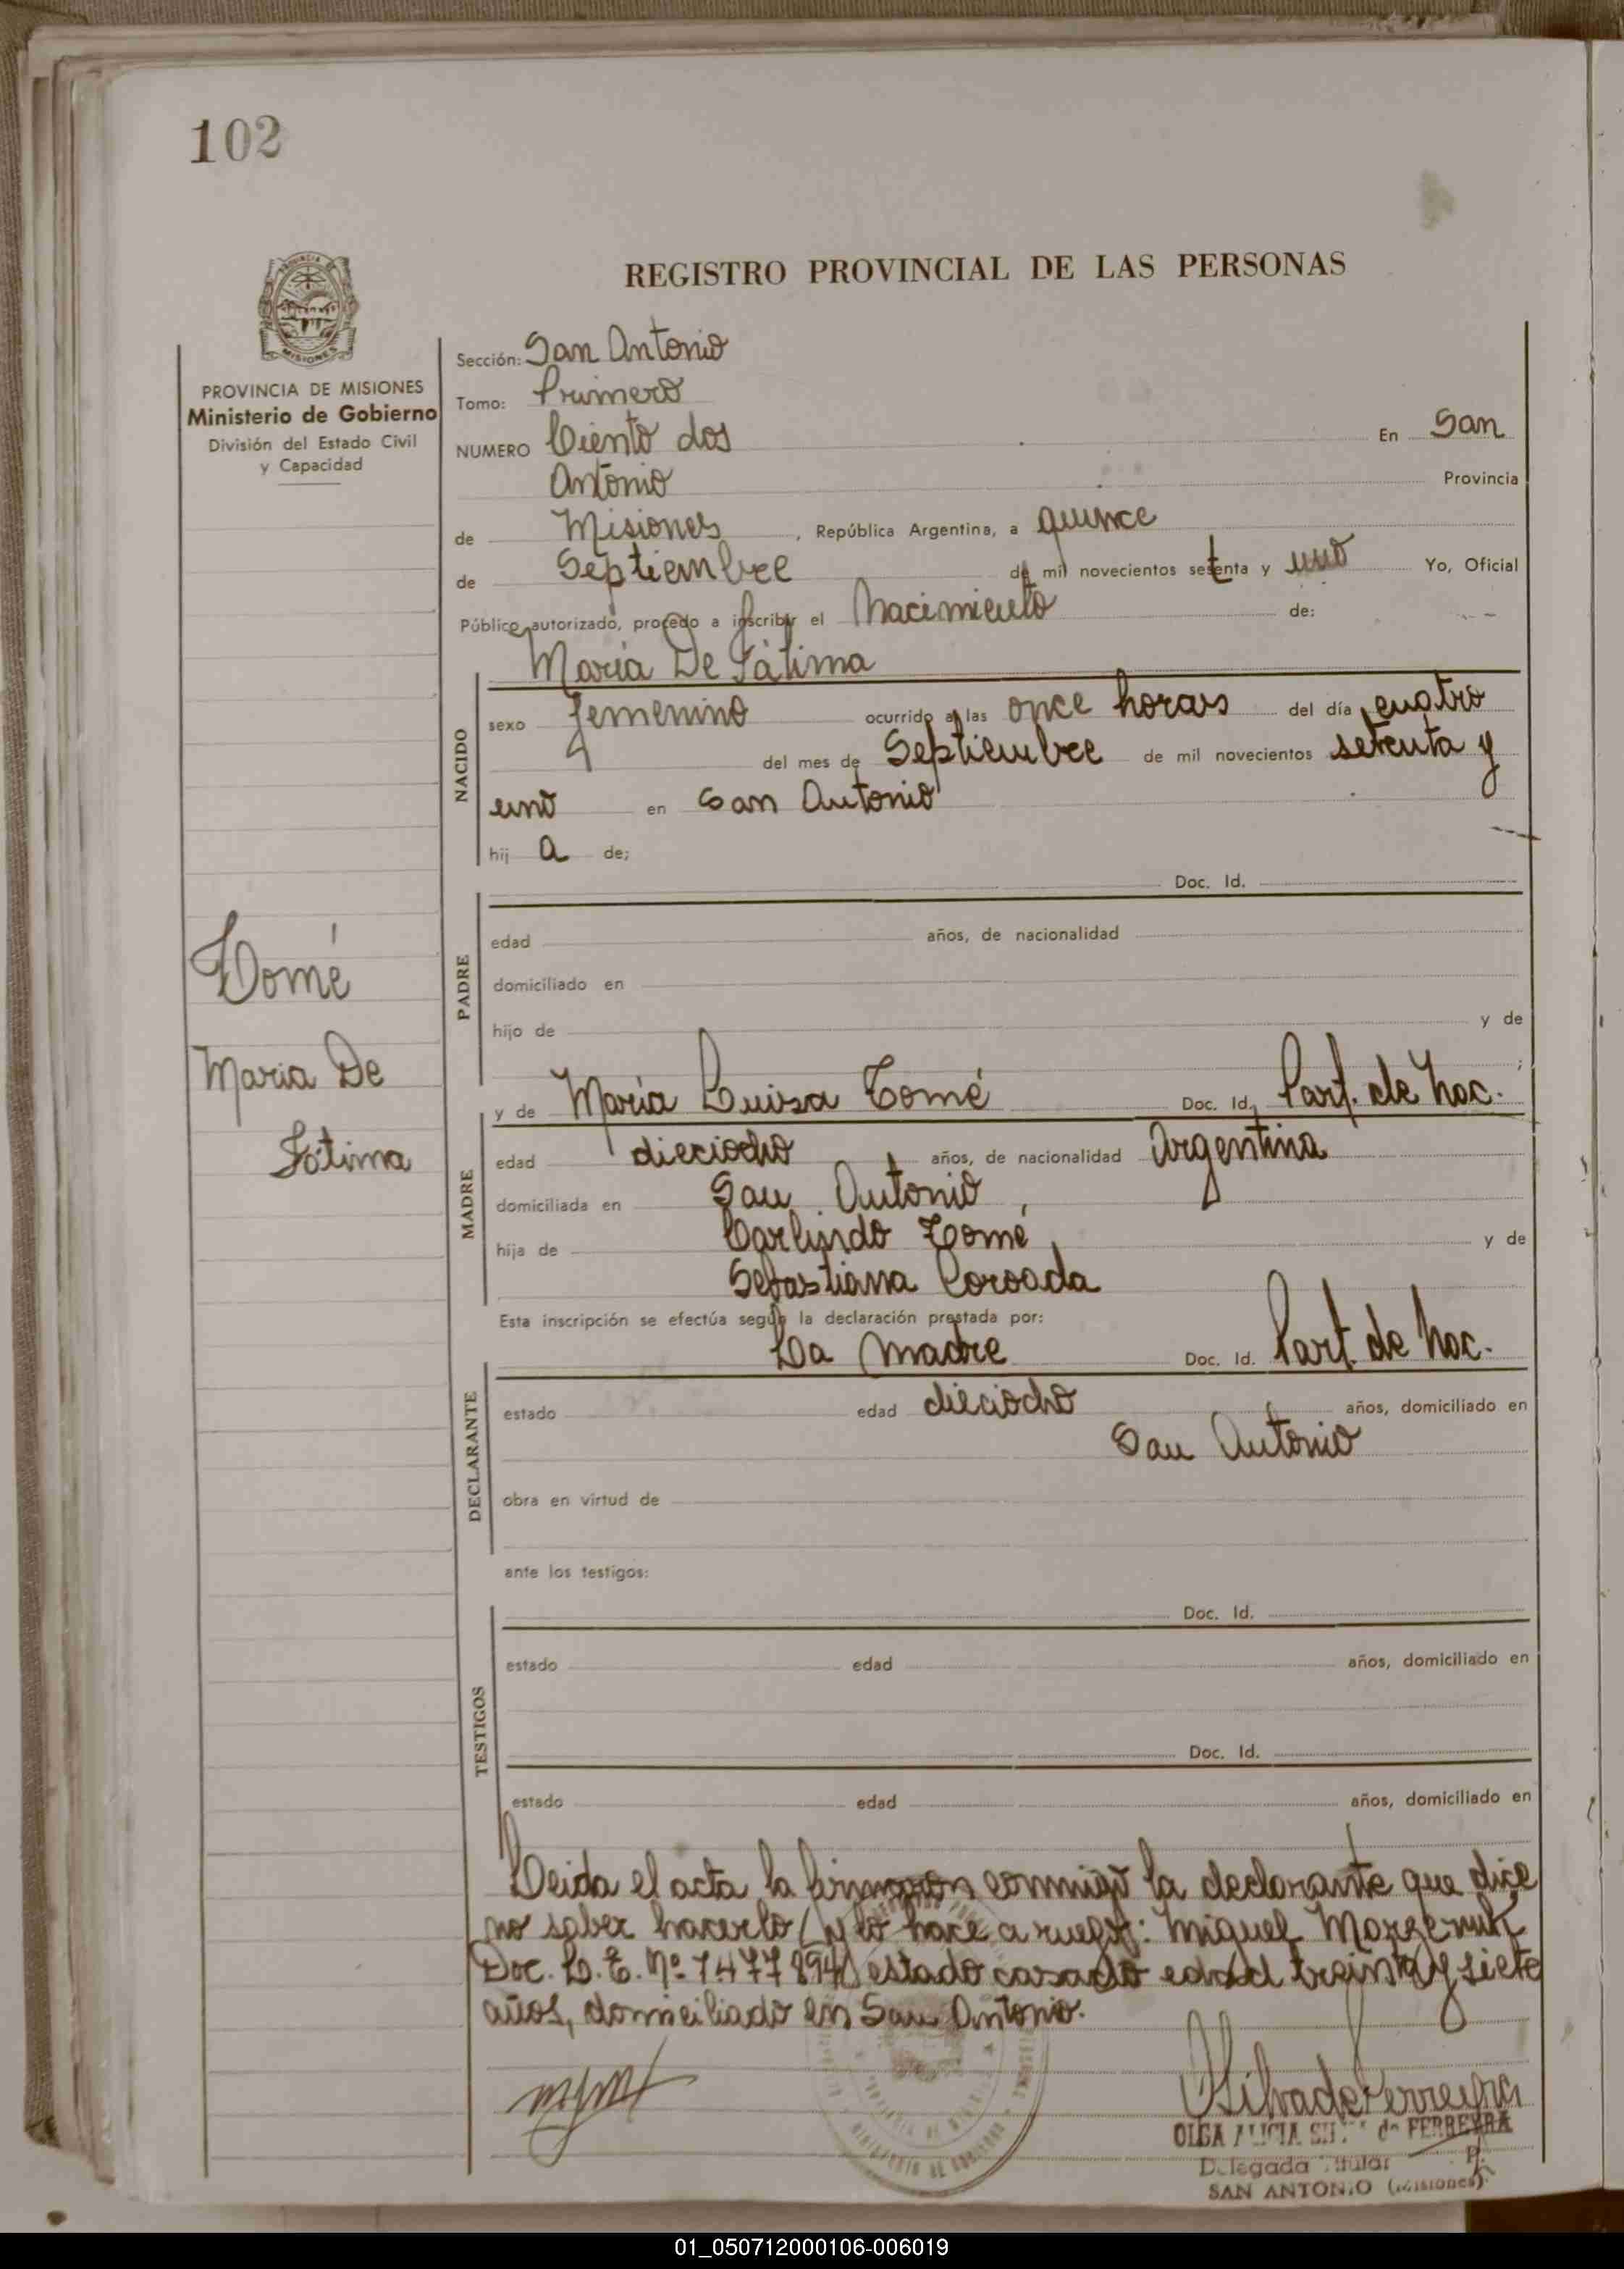 102
REGISTRO PROVINCIAL DE LAS PERSONAS
MISIONES
PROVINCIA DE MISIONES
Ministerio de Gobierno
División del Estado Civil
y Capacidad
Sección: San Antonio
Tomo: Primero
NUMERO Ciento dos En San
Antonio Provincia
de Misiones, República Argentina, a quince
de Septiembre de mil novecientos setenta y uno Yo, Oficial
Público autorizado, procedo a inscribir el Nacimiento de:
María De Fátima
NACIDO
sexo femenino ocurrido a las once horas del día cuatro
del mes de Septiembre de mil novecientos setenta y
uno en San Antonio
hij a de;
Doc. Id.
PADRE
edad años, de nacionalidad
domiciliado en
hijo de y de
;
Tomé
Maria De
Fátima
MADRE
y de María Luisa Tomé Doc. Id. Part. de Nac.
edad dieciocho años, de nacionalidad Argentina
domiciliada en San Antonio
hija de Carlindo Tomé y de
Sebastiana Coroada
Esta inscripción se efectúa según la declaración prestada por:
La madre Doc. Id. Part. de Nac.
DECLARANTE
estado edad dieciocho años, domiciliado en
San Antonio
obra en virtud de
ante los testigos:
Doc. Id.
TESTIGOS
estado edad años, domiciliado en
Doc. Id.
estado edad años, domiciliado en
Leida el acta la firmaron conmigo la declarante que dice
no saber hacerlo y lo hace a ruego: Miguel
Doc. L.E. Nº 7477894 estado casado edad treinta y siete
años, domiciliado en San Antonio.
OSilvadeFerreyra
OLGA ALICIA de FERREYRA
Delegada Titular
SAN ANTONIO (Misiones)
01_050712000106-006019